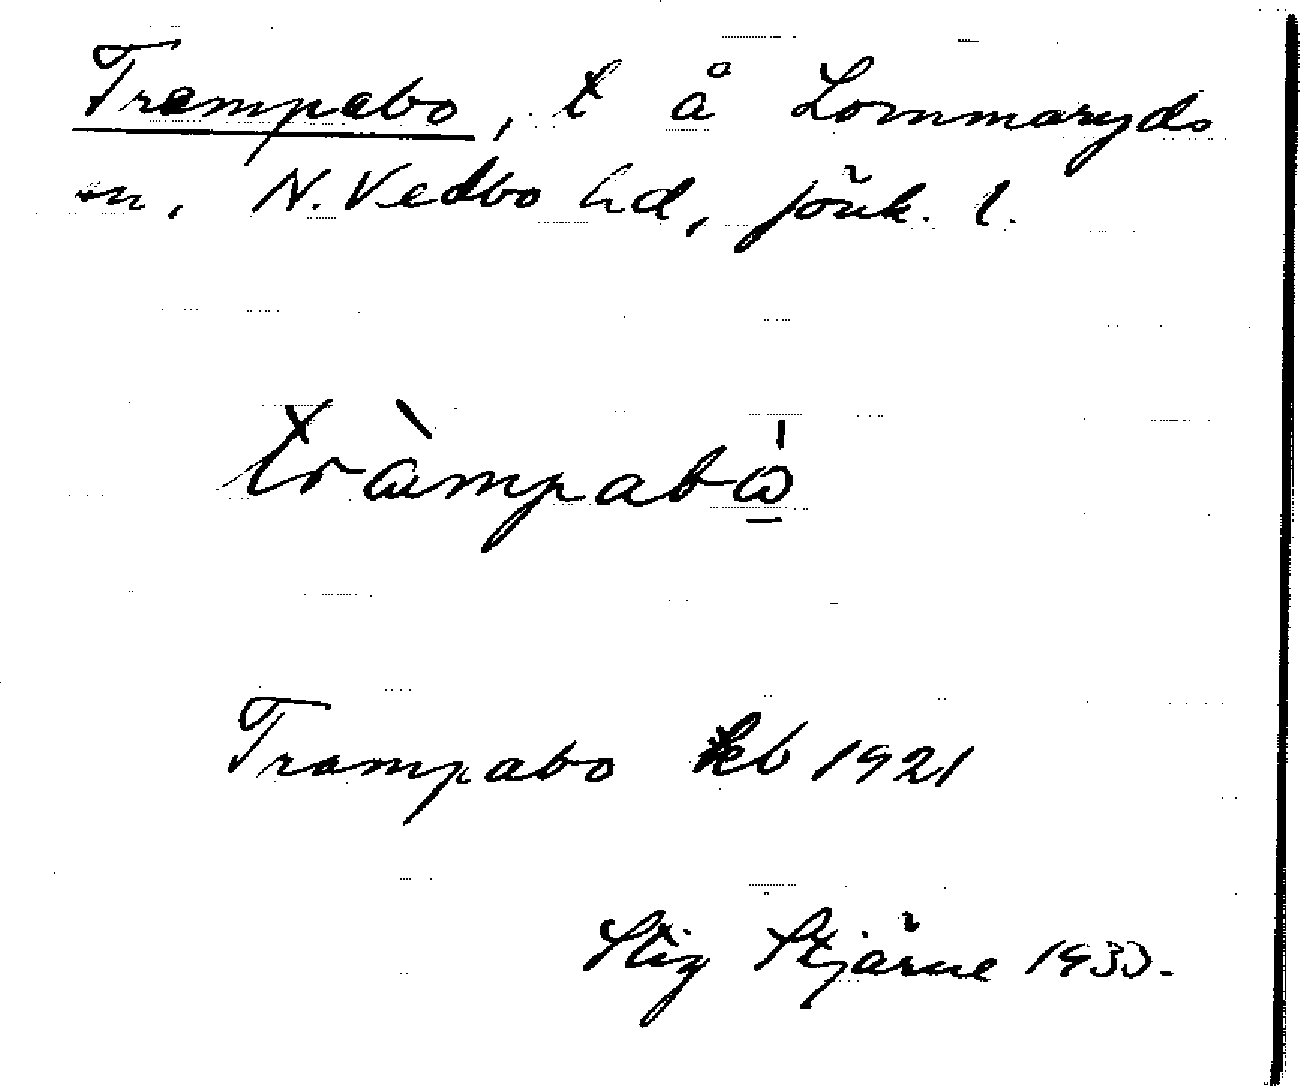 Trampabo, t å Lommaryds
sn, N. Vedbo hd, Jönk. l.
tràmpabò̱
Trampabo kb 1921
Stig Stjärne 1933.